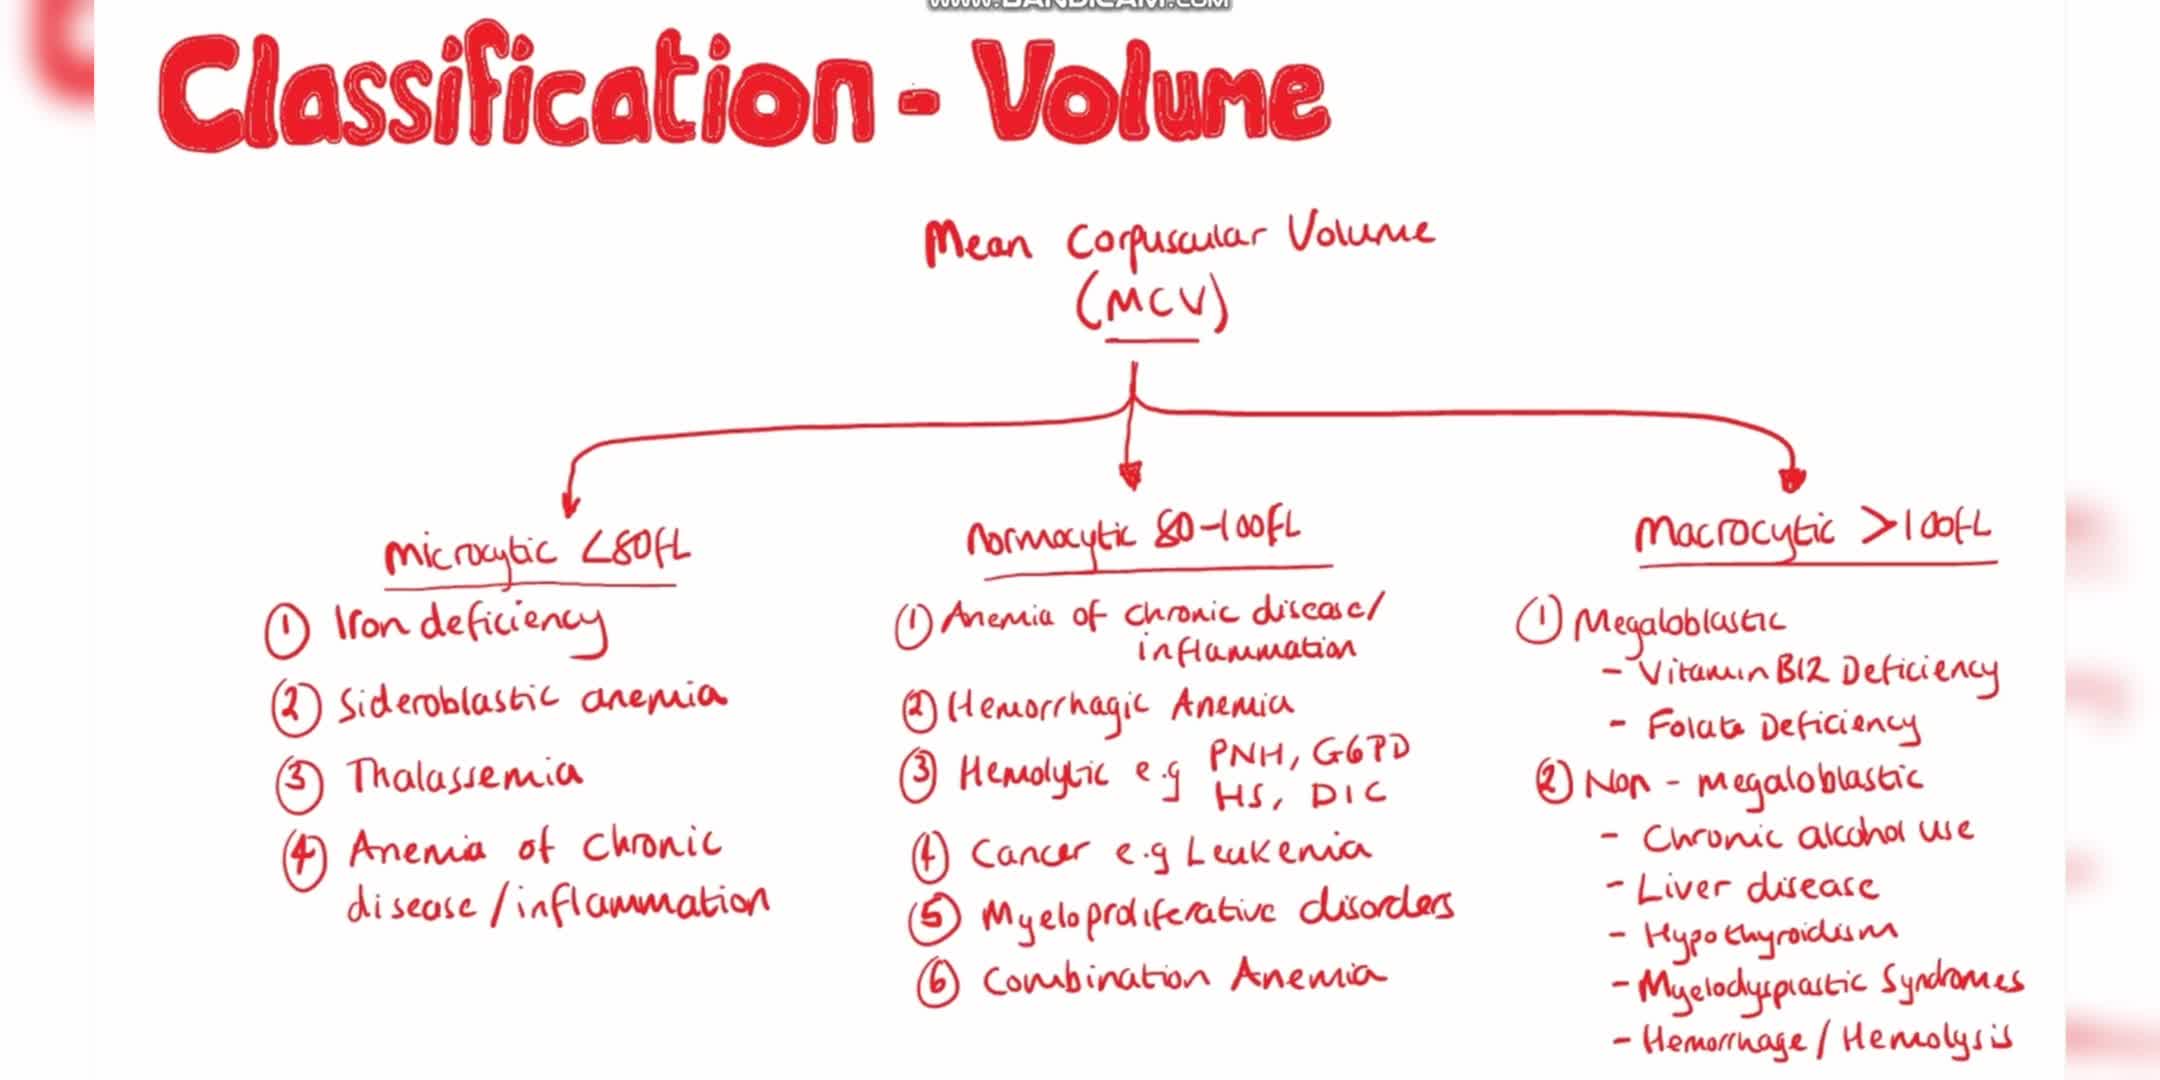 www.BANDICAM.com
Classification - Volume
Mean Corpuscular Volume
(MCV)
Microcytic <80fL
① Iron deficiency
② Sideroblastic anemia
③ Thalassemia
④ Anemia of chronic
disease/inflammation
Normocytic 80-100fL
① Anemia of chronic disease/
inflammation
② Hemorrhagic Anemia
③ Hemolytic e.g PNH, G6PD
HS, DIC
④ Cancer e.g Leukemia
⑤ Myeloproliferative disorders
⑥ Combination Anemia
Macrocytic >100fL
① Megaloblastic
- Vitamin B12 Deficiency
- Folate Deficiency
② Non - megaloblastic
- Chronic alcohol use
- Liver disease
- Hypothyroidism
- Myelodysplastic Syndromes
- Hemorrhage / Hemolysis